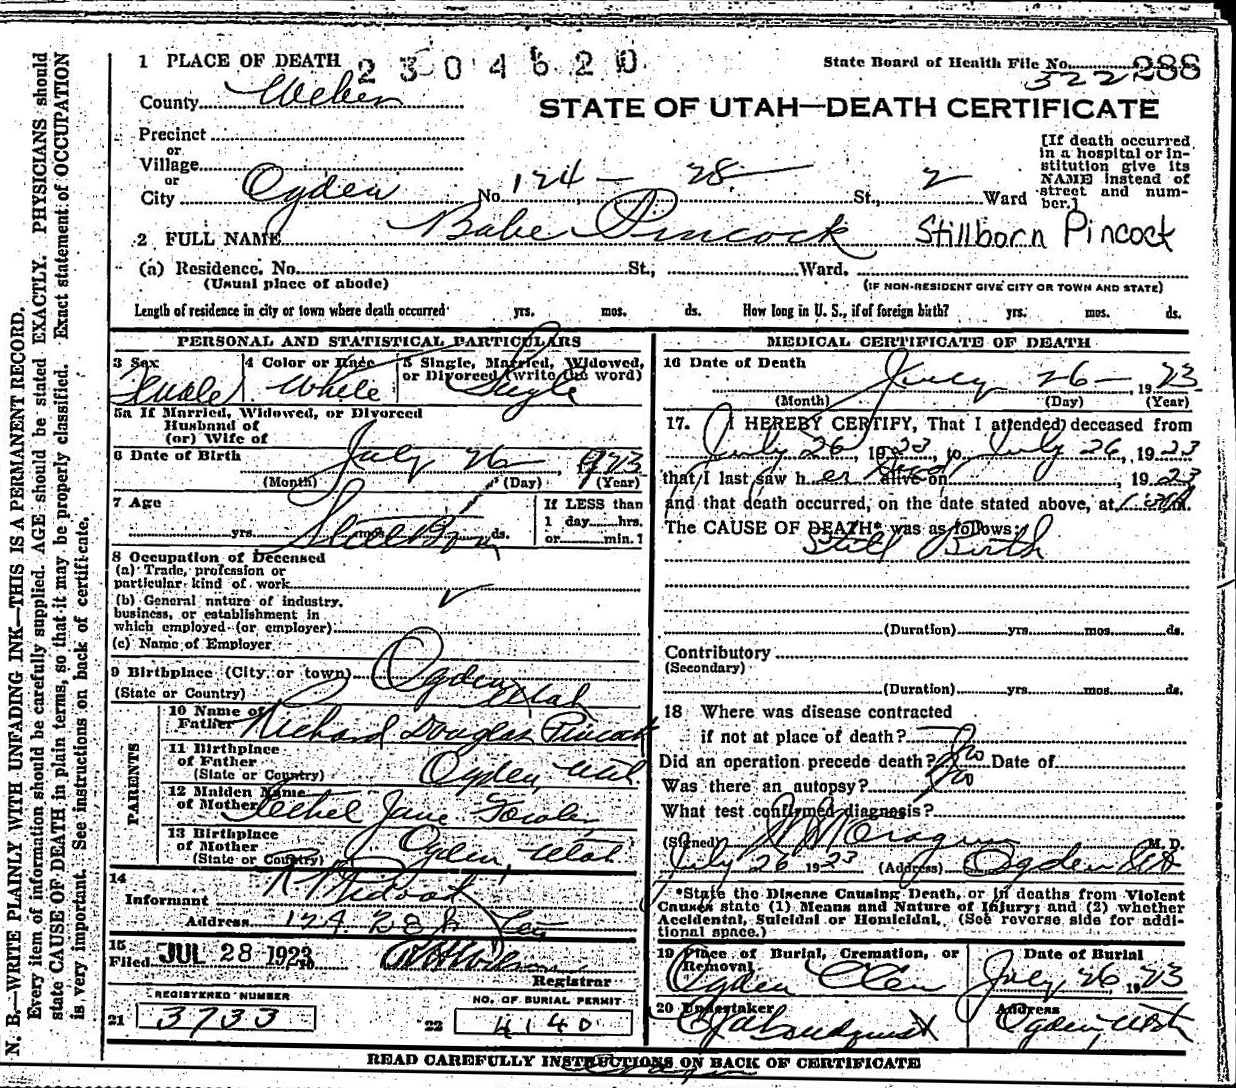 1 PLACE OF DEATH 2304620 State Board of Health File No. 322 288
County Weber
STATE OF UTAH—DEATH CERTIFICATE
Precinct
or
Village
or
City Ogden No. 124 - 28 St., 2 Ward
[If death occurred in a hospital or institution give its NAME instead of street and number.]
2 FULL NAME Babe Pincock Stillborn Pincock
(a) Residence. No. St., Ward.
(Usual place of abode) (IF NON-RESIDENT GIVE CITY OR TOWN AND STATE)
Length of residence in city or town where death occurred yrs. mos. ds. How long in U. S., if of foreign birth? yrs. mos. ds.
PERSONAL AND STATISTICAL PARTICULARS
3 Sex 4 Color or Race 5 Single, Married, Widowed, or Divorced (write the word)
Female White Single
5a If Married, Widowed, or Divorced
Husband of
(or) Wife of
6 Date of Birth July 26, 1923
(Month) (Day) (Year)
7 Age yrs. mos. ds. If LESS than
Stillborn 1 day hrs.
or min.?
8 Occupation of Deceased
(a) Trade, profession or
particular kind of work
(b) General nature of industry,
business, or establishment in
which employed (or employer)
(c) Name of Employer
9 Birthplace (City or town) Ogden
(State or Country) Utah
PARENTS
10 Name of Father Richard Douglas Pincock
11 Birthplace of Father Ogden, Utah
(State or Country)
12 Maiden Name of Mother Jane
13 Birthplace of Mother Ogden, Utah
(State or Country)
14
Informant
Address 124 28th
15
Filed JUL 28 1923
Registrar
REGISTERED NUMBER
21 3733
NO. OF BURIAL PERMIT
22 4140
MEDICAL CERTIFICATE OF DEATH
16 Date of Death July 26 - 1923
(Month) (Day) (Year)
17. I HEREBY CERTIFY, That I attended deceased from
July 26, 1923, to July 26, 1923
that I last saw her alive on , 1923
and that death occurred, on the date stated above, at M.
The CAUSE OF DEATH* was as follows:
Still Birth
(Duration) yrs. mos. ds.
Contributory
(Secondary)
(Duration) yrs. mos. ds.
18 Where was disease contracted
if not at place of death?
Did an operation precede death? No Date of
Was there an autopsy? No
What test confirmed diagnosis?
(Signed) M. D.
July 26 1923 (Address) Ogden Ut
*State the Disease Causing Death, or in deaths from Violent
Causes state (1) Means and Nature of Injury; and (2) whether
Accidental, Suicidal or Homicidal. (See reverse side for addi-
tional space.)
19 Place of Burial, Cremation, or Removal Date of Burial
Ogden July 26, 1923
20 Undertaker Address
Ogden, Utah
READ CAREFULLY INSTRUCTIONS ON BACK OF CERTIFICATE
N. B.—WRITE PLAINLY WITH UNFADING INK—THIS IS A PERMANENT RECORD.
Every item of information should be carefully supplied. AGE should be stated EXACTLY. PHYSICIANS should
state CAUSE OF DEATH in plain terms, so that it may be properly classified. Exact statement of OCCUPATION
is very important. See instructions on back of certificate.